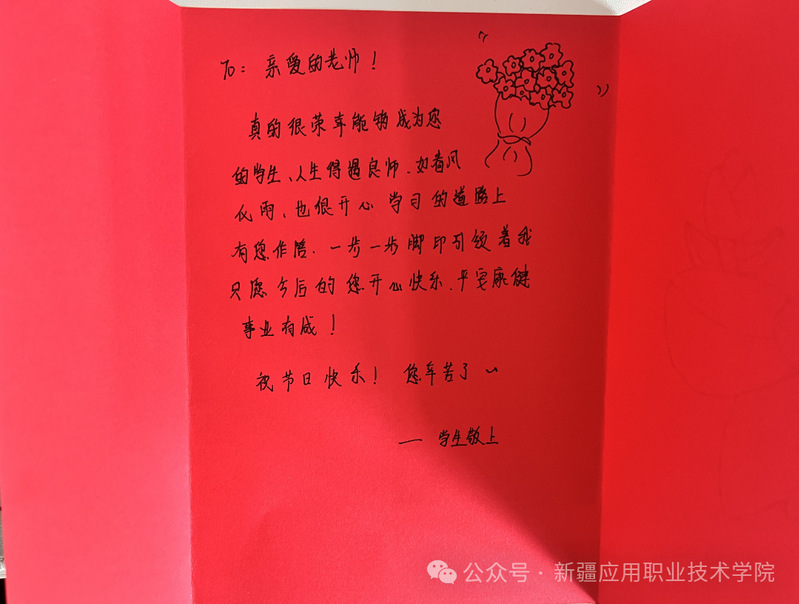 To：亲爱的老师！
真的很荣幸能够成为您
的学生、人生得遇良师、如春风
化雨、也很开心学习的道路上
有您作陪、一步一步脚印引领着我
只愿今后的您开心快乐、平安康健
事业有成！
祝节日快乐！您辛苦了～
——学生敬上
公众号·新疆应用职业技术学院